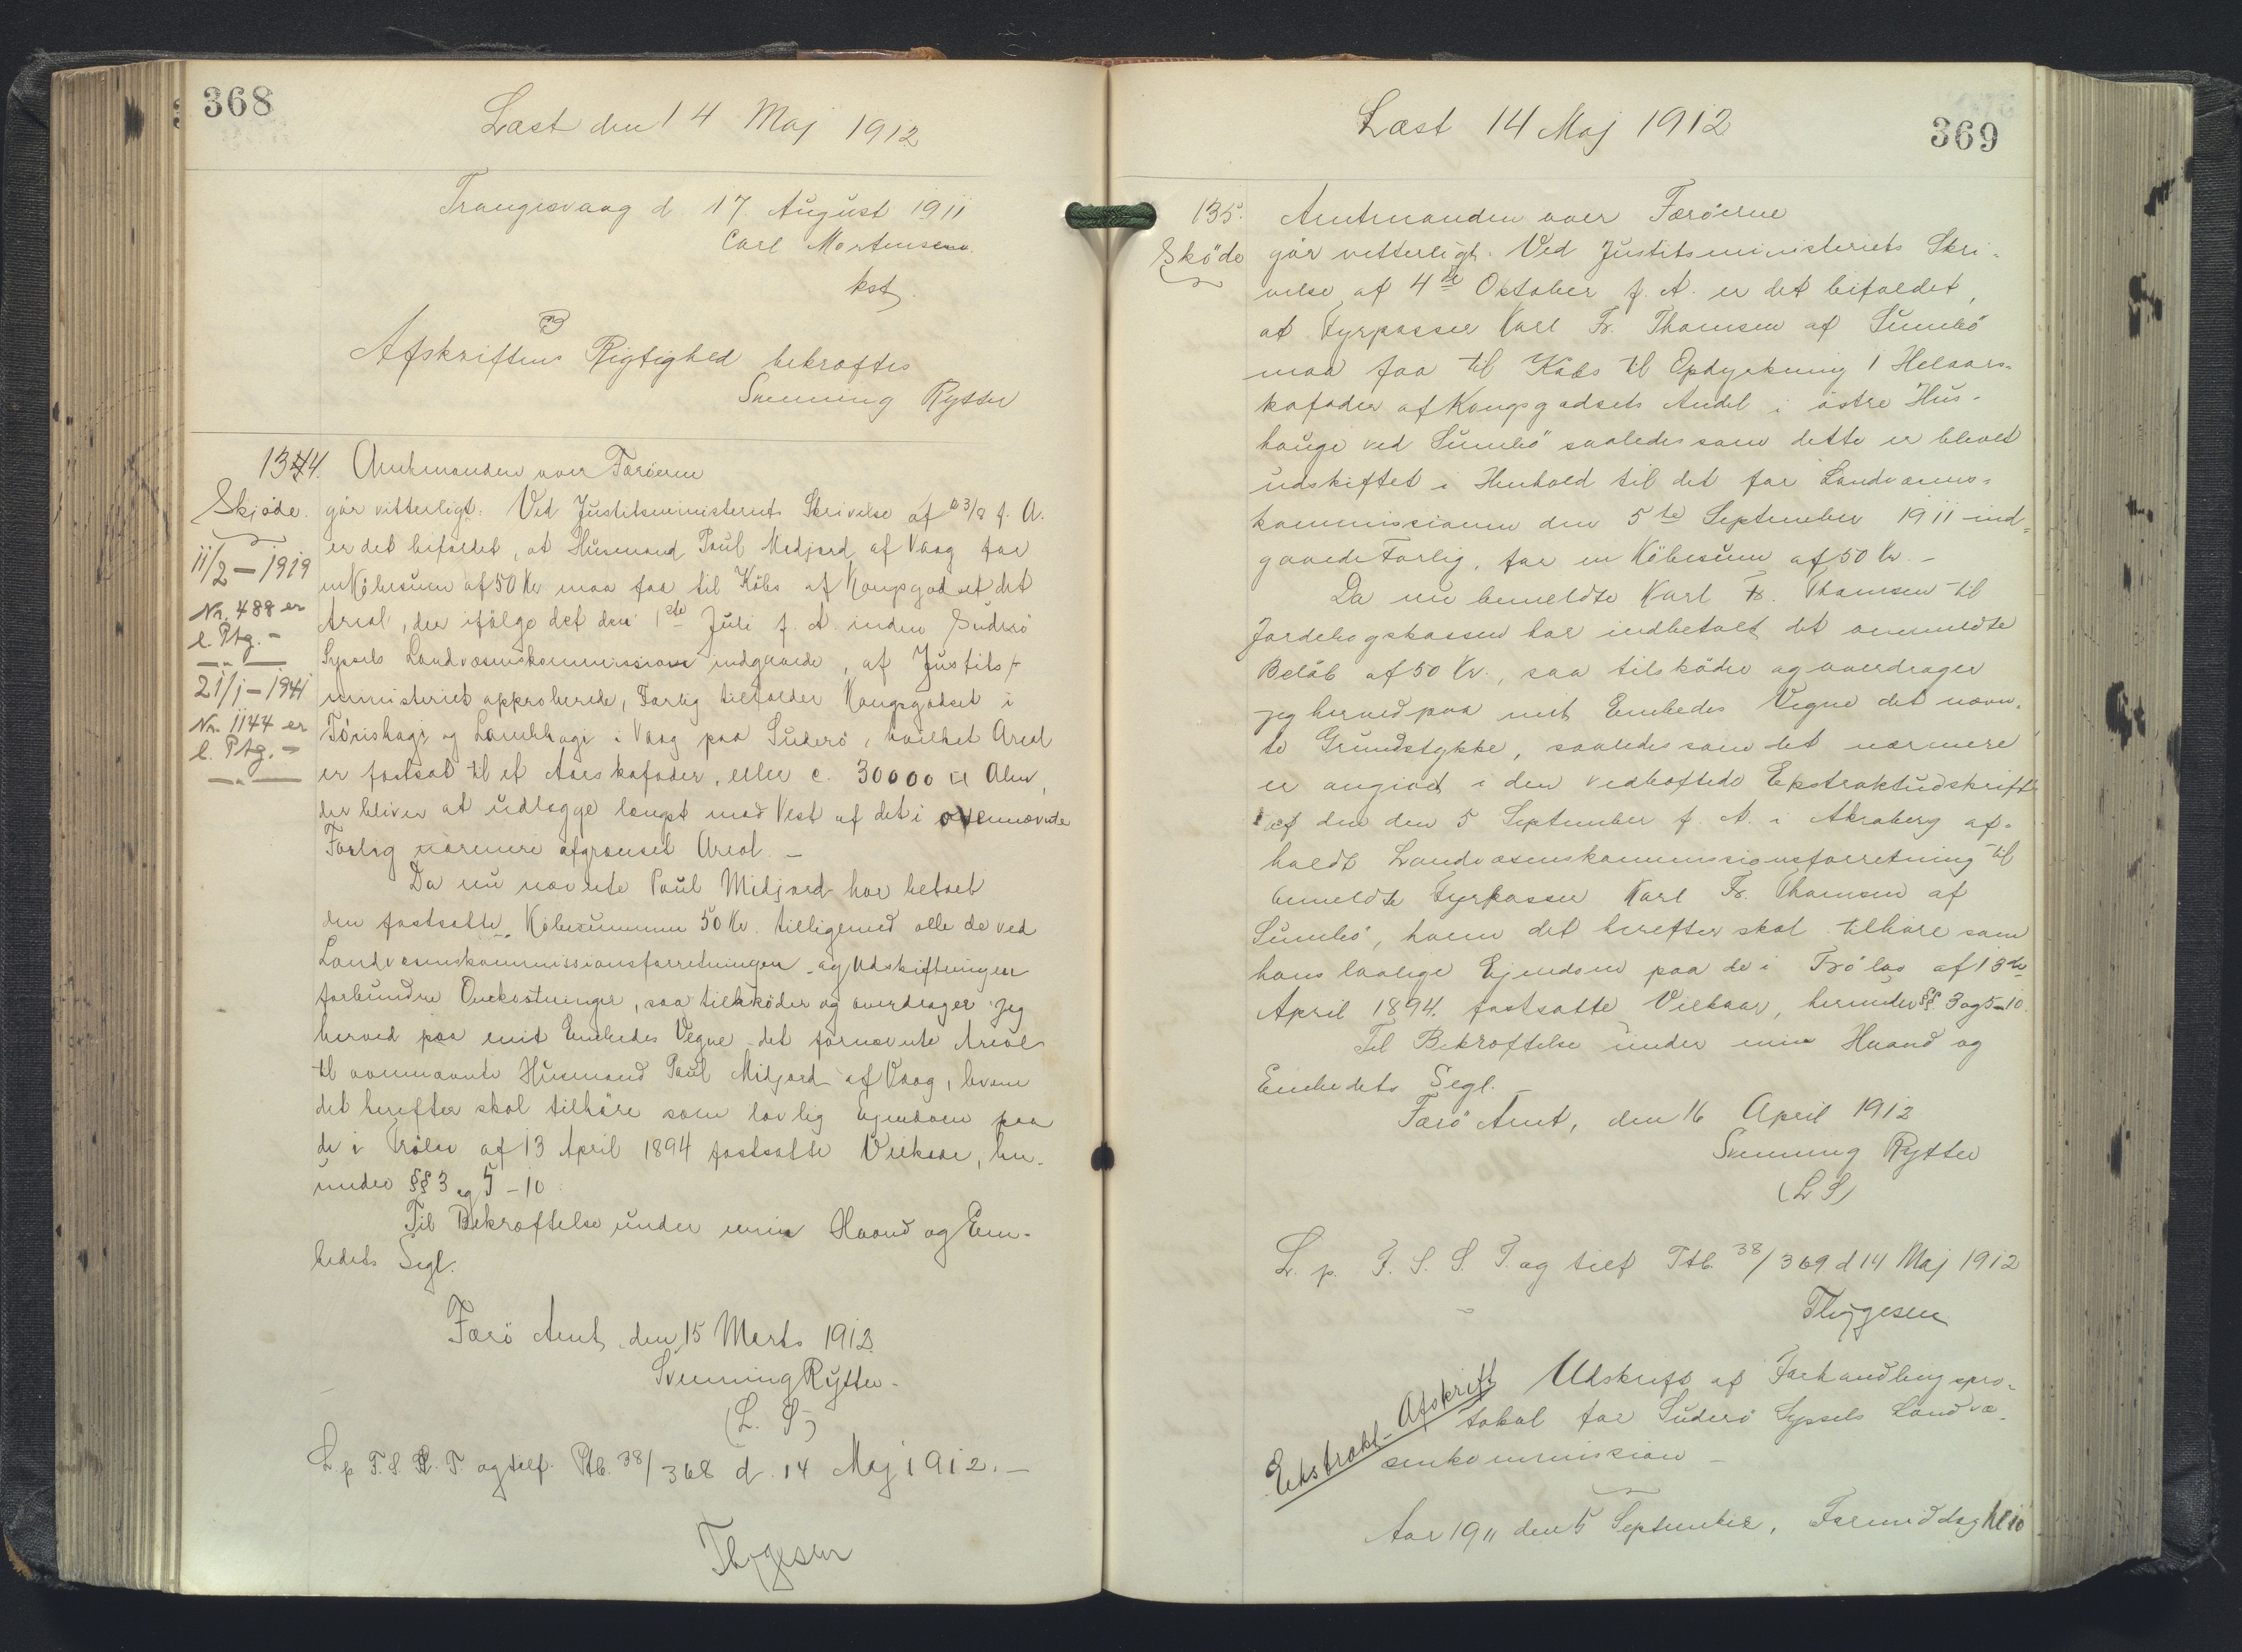 368
Læst den 14 Maj 1912
Trangisvaag d. 17. August 1911
Carl Mortensen
kst.
Afskriftens Rigtighed bekræftes
Svenning Rytter
134. Amtmanden over Færøerne
Skjøde. gør vitterligt: Ved Justitsministeriets Skrivelse af 23/8 f. A.
er det bifaldet, at Husmand Poul Midjord af Vaag for
en Købesum af 50 Kr maa faa til Købs af Kongsgodset det
Areal, der ifølge det den 1ste Juli f. A. inden Suderø
Syssels Landvæsenskommission indgaaede, af Justits-
ministeriet approberede, Forlig tilfalder Kongsgodset i
Tórishagi og Lambhagi i Vaag paa Suderø, hvilket Areal
er fastsat til et Aars kofoder, eller c. 30000 □ Alen,
der bliver at udlægge længst mod Vest af det i ovennævnte
Forlig nærmere afgrænset Areal. –
11/2 – 1919
Nr. 488 er
l. Ptg. –
21/1 – 1941
Nr. 1144 er
l. Ptg. –
Da nu nævnte Poul Midjord har betalt
den fastsatte Købesummen 50 Kr. tilligemed alle de ved
Landvæsenskommissionsforretningen og Udskiftningen
forbundne Omkostninger, saa tilskøder og overdrager jeg
herved paa mit Embedes Vegne det fornævnte Areal
til ovennævnte Husmand Poul Midjord af Vaag, hvem
det herefter skal tilhøre som lovlig Ejendom paa
de i Frølov af 13 April 1894 fastsatte Vilkaar, her-
under §§ 3 og 5 – 10
Til Bekræftelse under min Haand og Em-
bedets Segl.
Færø Amt, den 15 Marts 1912.
Svenning Rytter.
(L. S.)
L. p. F. S. S. T. og tilf. Ptb. 38/368 d. 14 Maj 1912. –
Thygesen
Læst 14 Maj 1912
369
135. Amtmanden over Færøerne
Skøde gør vitterligt: Ved Justitsministeriets Skri-
velse af 4de Oktober f. A. er det bifaldet,
at Fyrpasser Karl Fr. Thomsen af Sumbø
maa faa til Købs til Opdyrkning 1 Helaars-
kofoder af Kongsgodsets Andel i østre Hus-
hauge ved Sumbø saaledes som dette er blevet
udskiftet i Henhold til det for Landvæsens-
kommissionen den 5te September 1911 ind-
gaaede Forlig, for en Købesum af 50 Kr. –
Da nu bemeldte Karl Fr. Thomsen til
Jordebogskassen har indbetalt det anmeldte
Beløb af 50 Kr., saa tilskøder og overdrager
jeg herved paa mit Embedes Vegne det nævn-
te Grundstykke, saaledes som det nærmere
er angivet i den vedhæftede Ekstraktudskrift
af den den 5 September f. A. i Akraberg af-
holdt Landvæsenskommissionsforretning til
bemeldte Fyrpasser Karl Fr. Thomsen af
Sumbø, hvem det herefter skal tilhøre som
hans lovlige Ejendom paa de i Frølov af 13de
April 1894 fastsatte Vilkaar, herunder §§. 3 og 5–10.
Til Bekræftelse under min Haand og
Embedets Segl. –
Færø Amt, den 16 April 1912
Svenning Rytter
(L S)
L. p. F. S. S. T. og tilf Ptb. 38/369 d 14 Maj 1912
Thygesen
Ekstrakt-Afskrift
Udskrift af Forhandlingspro-
tokol for Suderø Syssels Landvæ-
senkommission –
Aar 1911 den 5 September, Formiddag kl 10